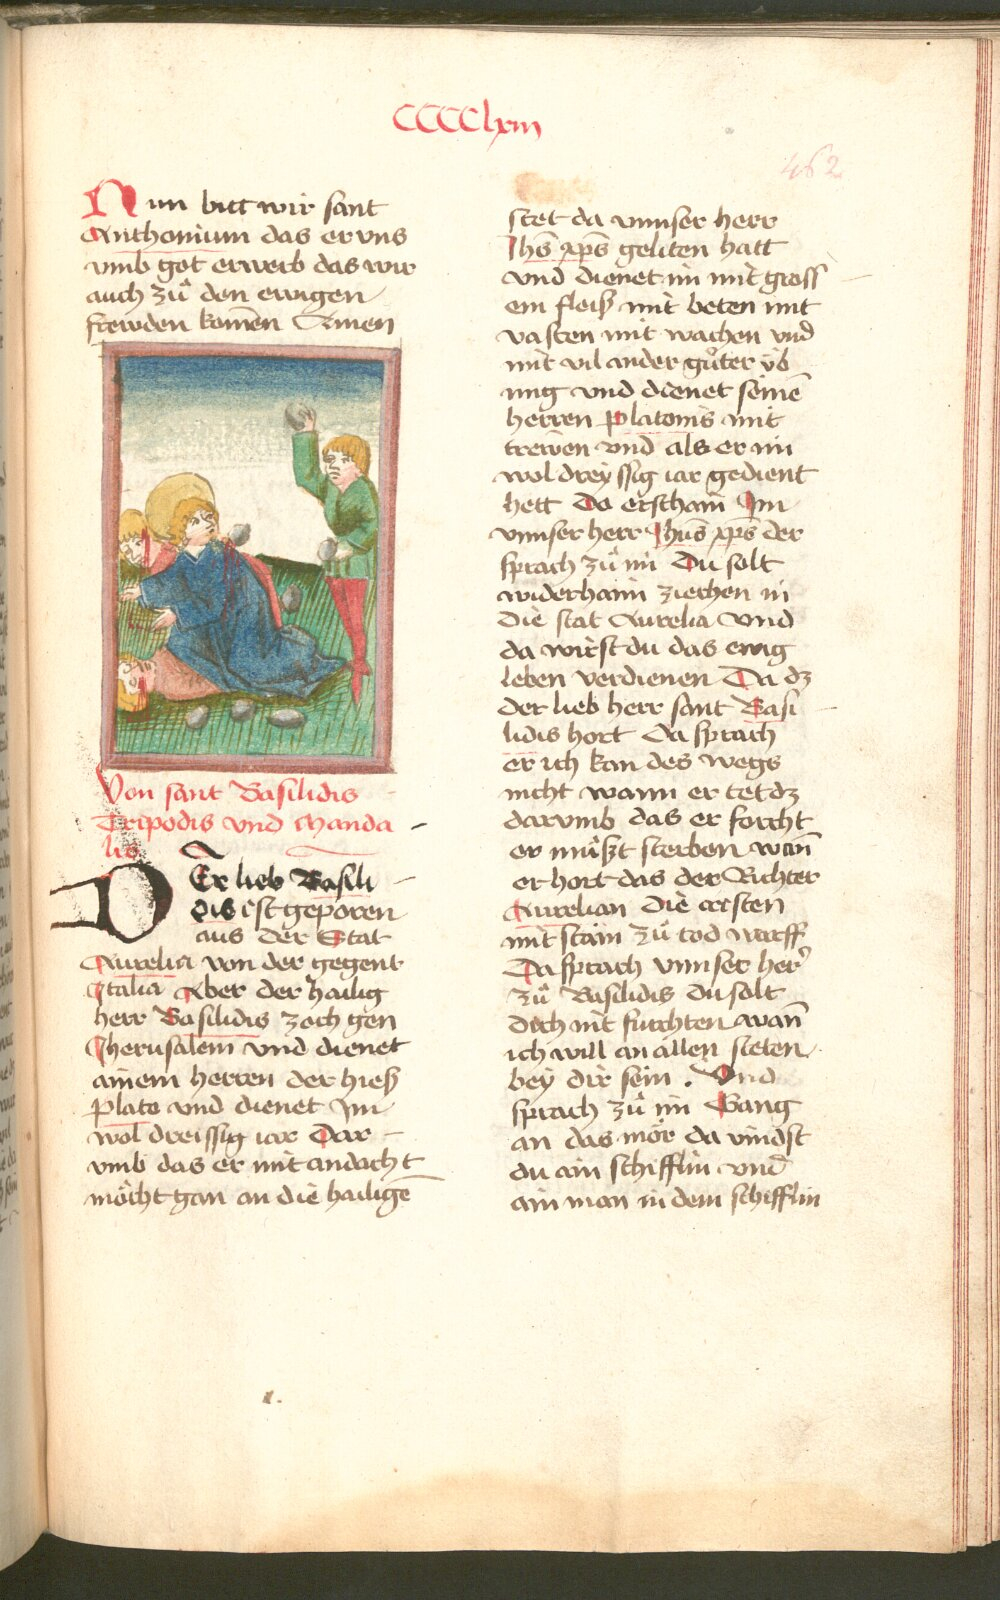 CCCClxiii
462
Nun bitt wir sant
Anthonium das er vns
vmb got erwerb das wir
auch zů den ewigen
frewden komēn Amen
Von sant Basilidis
Tripodis vnd Manda
lis
DEr lieb Basili
dis ist geporen
aus der Stat
Aurelia von der gegent
Italia Aber der hailig
herr Basilidis zoch gen
Jherusalem vnd dienet
ainem herren der hieß
Plato vnd dienet Im
wol dreissig iar Dar
vmb das er mit andacht
möcht gan an die hailigē
stet da vnnser herr
Jhs̄ xp̄s geliten hatt
vnd dienet im mit gross
em fleiß mit beten mit
vasten mit wachen vnd
mit vil ander gůter yͤb
ung vnd dienet seinē
herren Platonis mit
trewen vnd als er im
wol dreyssig iar gedient
hett Do erschain Im
vnnser herr Jhūs xp̄s der
sprach zů im Du solt
widerhaim ziechen in
die stat Aurelia vnd
da wirst du das ewig
leben verdienen Da dz
der lieb herr sant Basi
lidis hort da sprach
er ich kan des wegs
nicht wann er tet dz
darumb das er forcht
er můßt sterben wan̄
er hort das der Richter
Aurelian die cristen
mit stain zů tod warff
Da sprach vnnser her᷑
zů Basilidis du solt
dich nit furchten wan̄
ich will an allen steten
bey dir sein . Vnd
sprach zů im Gang
an das mör da vindst
du ain schifflin vnd
ain man in dem schifflin